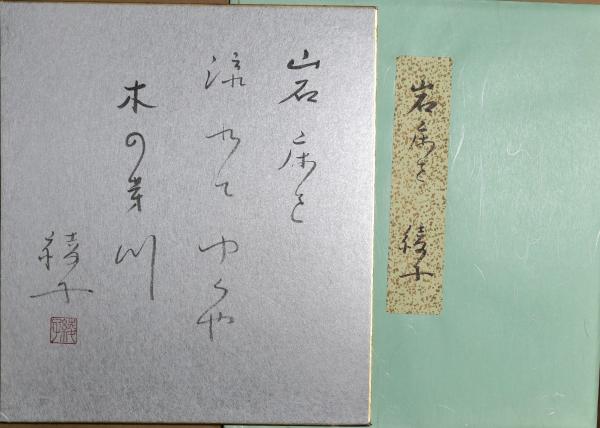 岩床を
流れてゆくや
木の芽川
綾子
岩床を 綾子